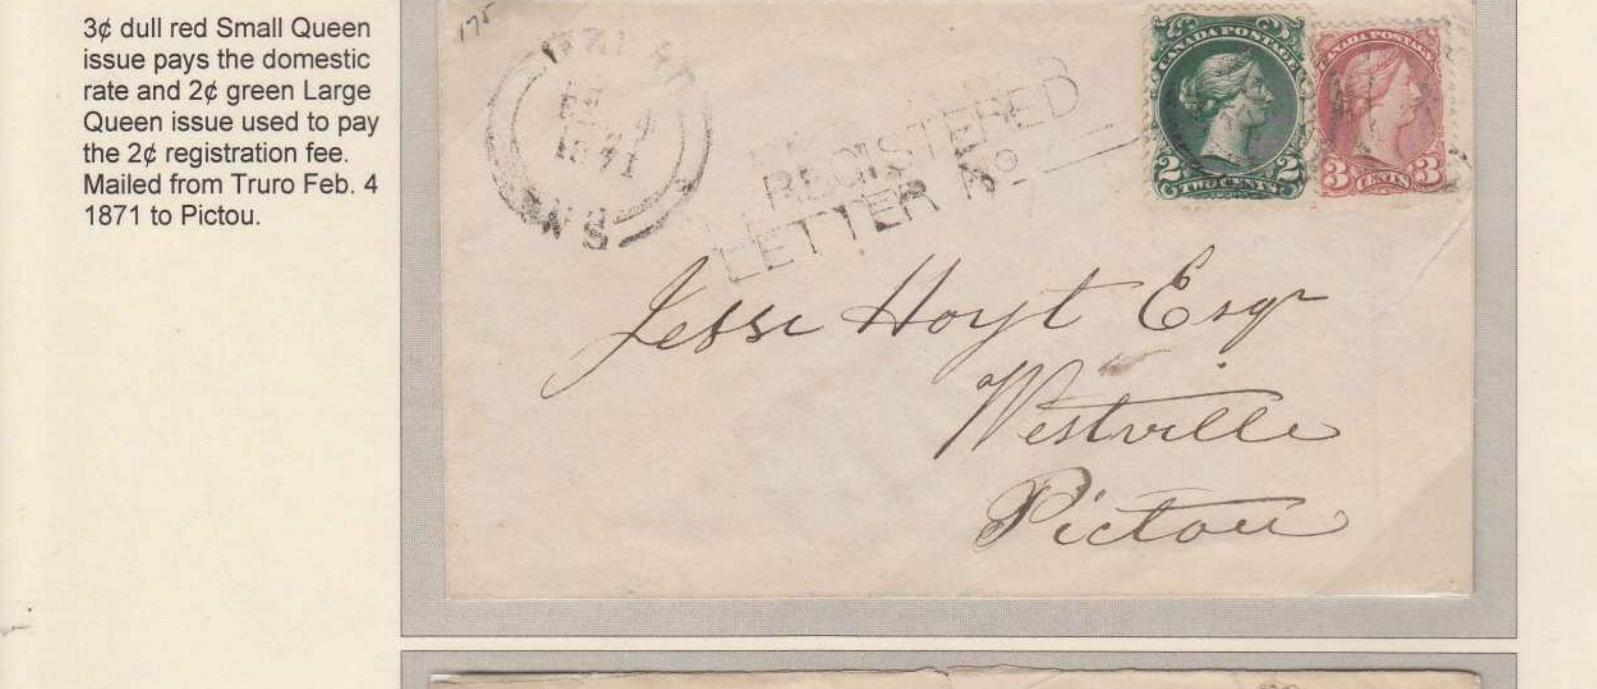 3¢ dull red Small Queen
issue pays the domestic
rate and 2¢ green Large
Queen issue used to pay
the 2¢ registration fee.
Mailed from Truro Feb. 4
1871 to Pictou.
175
FE 4
1871
N S
REGISTERED
LETTER No
CANADA POSTAGE
2 2
TWO CENTS
CANADA POSTAGE
3 3
CENTS
Jesse Hoyt Esqr
Westville
Pictou